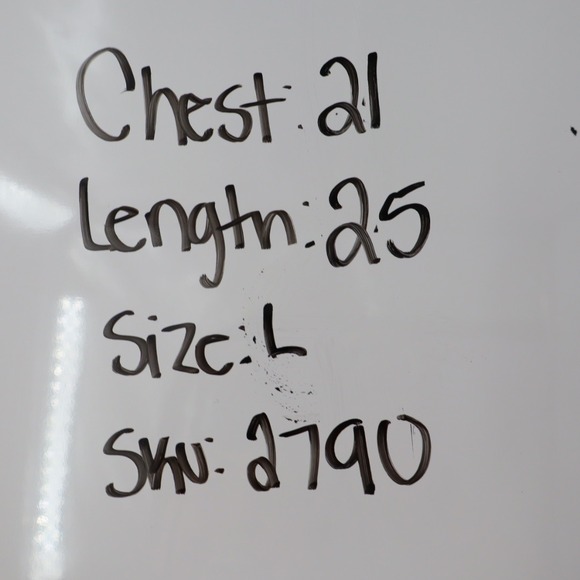 Chest: 21
Length: 25
Size: L
Sku: 2790